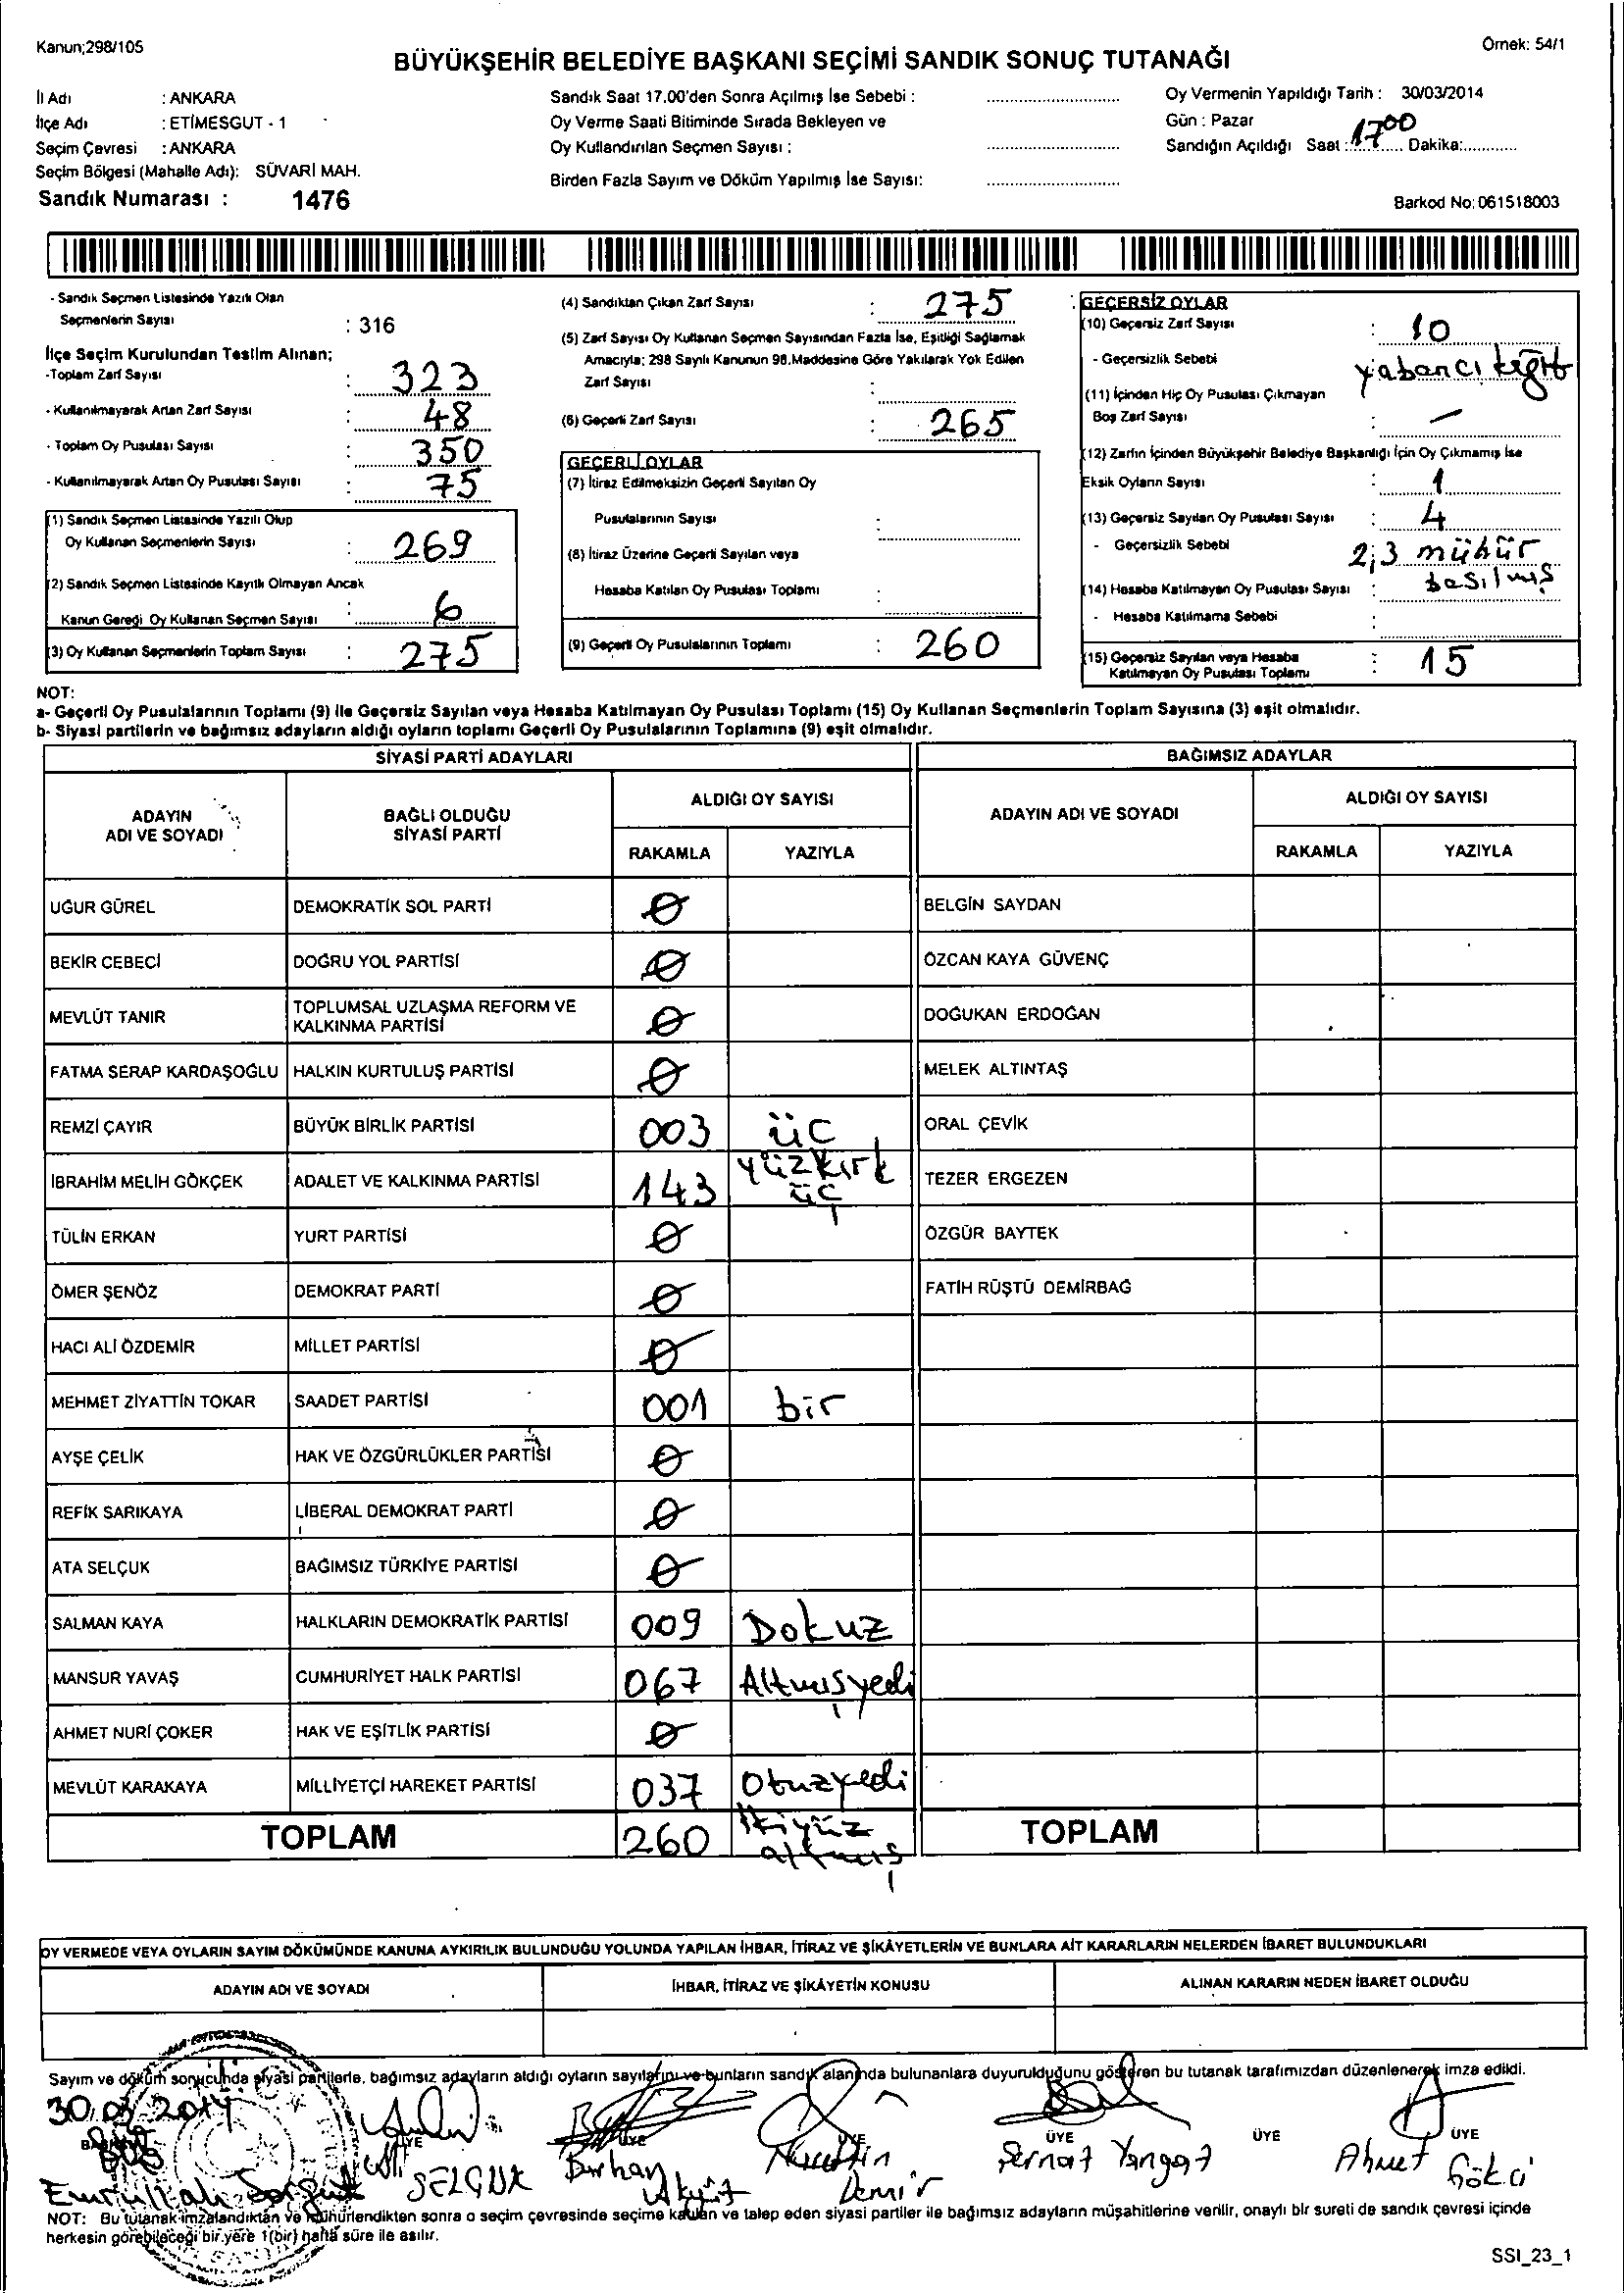 Kanun;298/105
Örnek: 54/1
BÜYÜKŞEHİR BELEDİYE BAŞKANI SEÇİMİ SANDIK SONUÇ TUTANAĞI
İl Adı : ANKARA
İlçe Adı : ETİMESGUT - 1
Seçim Çevresi : ANKARA
Seçim Bölgesi (Mahalle Adı): SÜVARİ MAH.
Sandık Numarası : 1476
Sandık Saat 17.00'den Sonra Açılmış İse Sebebi :
Oy Verme Saati Bitiminde Sırada Bekleyen ve
Oy Kullandırılan Seçmen Sayısı :
Birden Fazla Sayım ve Döküm Yapılmış İse Sayısı:
Oy Vermenin Yapıldığı Tarih : 30/03/2014
Gün : Pazar
Sandığın Açıldığı Saat : 1700 Dakika:
Barkod No: 061518003
- Sandık Seçmen Listesinde Yazılı Olan
Seçmenlerin Sayısı : 316
İlçe Seçim Kurulundan Teslim Alınan;
-Toplam Zarf Sayısı : 323
- Kullanılmayarak Artan Zarf Sayısı : 48
- Toplam Oy Pusulası Sayısı : 350
- Kullanılmayarak Artan Oy Pusulası Sayısı : 75
(1) Sandık Seçmen Listesinde Yazılı Olup
Oy Kullanan Seçmenlerin Sayısı : 269
(2) Sandık Seçmen Listesinde Kayıtlı Olmayan Ancak
Kanun Gereği Oy Kullanan Seçmen Sayısı : 6
(3) Oy Kullanan Seçmenlerin Toplam Sayısı : 275
(4) Sandıktan Çıkan Zarf Sayısı : 275
(5) Zarf Sayısı Oy Kullanan Seçmen Sayısından Fazla İse, Eşitliği Sağlamak
Amacıyla; 298 Sayılı Kanunun 98.Maddesine Göre Yakılarak Yok Edilen
Zarf Sayısı :
(6) Geçerli Zarf Sayısı : 265
GEÇERLİ OYLAR
(7) İtiraz Edilmeksizin Geçerli Sayılan Oy
Pusulalarının Sayısı :
(8) İtiraz Üzerine Geçerli Sayılan veya
Hesaba Katılan Oy Pusulası Toplamı :
(9) Geçerli Oy Pusulalarının Toplamı : 260
GEÇERSİZ OYLAR
(10) Geçersiz Zarf Sayısı : 10
- Geçersizlik Sebebi yabancı kağıt
(11) İçinden Hiç Oy Pusulası Çıkmayan
Boş Zarf Sayısı : —
(12) Zarfın İçinden Büyükşehir Belediye Başkanlığı İçin Oy Çıkmamış İse
Eksik Oyların Sayısı : 1
(13) Geçersiz Sayılan Oy Pusulası Sayısı : 4
- Geçersizlik Sebebi 2,3 mühür
basılmış
(14) Hesaba Katılmayan Oy Pusulası Sayısı :
- Hesaba Katılmama Sebebi :
(15) Geçersiz Sayılan veya Hesaba
Katılmayan Oy Pusulası Toplamı : 15
NOT:
a- Geçerli Oy Pusulalarının Toplamı (9) ile Geçersiz Sayılan veya Hesaba Katılmayan Oy Pusulası Toplamı (15) Oy Kullanan Seçmenlerin Toplam Sayısına (3) eşit olmalıdır.
b- Siyasi partilerin ve bağımsız adayların aldığı oyların toplamı Geçerli Oy Pusulalarının Toplamına (9) eşit olmalıdır.
SİYASİ PARTİ ADAYLARI
BAĞIMSIZ ADAYLAR
ADAYIN ADI VE SOYADI
BAĞLI OLDUĞU SİYASİ PARTİ
ALDIĞI OY SAYISI
RAKAMLA YAZIYLA
ADAYIN ADI VE SOYADI
ALDIĞI OY SAYISI
RAKAMLA YAZIYLA
UĞUR GÜREL DEMOKRATİK SOL PARTİ Ø BELGİN SAYDAN
BEKİR CEBECİ DOĞRU YOL PARTİSİ Ø ÖZCAN KAYA GÜVENÇ
MEVLÜT TANIR TOPLUMSAL UZLAŞMA REFORM VE KALKINMA PARTİSİ Ø DOĞUKAN ERDOĞAN
FATMA SERAP KARDAŞOĞLU HALKIN KURTULUŞ PARTİSİ Ø MELEK ALTINTAŞ
REMZİ ÇAYIR BÜYÜK BİRLİK PARTİSİ 003 üç ORAL ÇEVİK
İBRAHİM MELİH GÖKÇEK ADALET VE KALKINMA PARTİSİ 143 yüzkırk üç TEZER ERGEZEN
TÜLİN ERKAN YURT PARTİSİ Ø ÖZGÜR BAYTEK
ÖMER ŞENÖZ DEMOKRAT PARTİ Ø FATİH RÜŞTÜ DEMİRBAĞ
HACI ALİ ÖZDEMİR MİLLET PARTİSİ Ø
MEHMET ZİYATTİN TOKAR SAADET PARTİSİ 001 bir
AYŞE ÇELİK HAK VE ÖZGÜRLÜKLER PARTİSİ Ø
REFİK SARIKAYA LİBERAL DEMOKRAT PARTİ Ø
ATA SELÇUK BAĞIMSIZ TÜRKİYE PARTİSİ Ø
SALMAN KAYA HALKLARIN DEMOKRATİK PARTİSİ 009 Dokuz
MANSUR YAVAŞ CUMHURİYET HALK PARTİSİ 067 Altmışyedi
AHMET NURİ ÇOKER HAK VE EŞİTLİK PARTİSİ Ø
MEVLÜT KARAKAYA MİLLİYETÇİ HAREKET PARTİSİ 037 Otuzyedi
TOPLAM 260 İkiyüz altmış TOPLAM
OY VERMEDE VEYA OYLARIN SAYIM DÖKÜMÜNDE KANUNA AYKIRILIK BULUNDUĞU YOLUNDA YAPILAN İHBAR, İTİRAZ VE ŞİKÂYETLERİN VE BUNLARA AİT KARARLARIN NELERDEN İBARET BULUNDUKLARI
ADAYIN ADI VE SOYADI İHBAR, İTİRAZ VE ŞİKÂYETİN KONUSU ALINAN KARARIN NEDEN İBARET OLDUĞU
Sayım ve döküm sonucunda siyasi partilerle, bağımsız adayların aldığı oyların sayılarını ve bunların sandık alanında bulunanlara duyurulduğunu gösteren bu tutanak tarafımızdan düzenlenerek imza edildi.
30.03.2014
BAŞKAN ÜYE ÜYE ÜYE ÜYE ÜYE ÜYE
Emrullah
SELÇUK
Burhan Akyüz
Nurettin Demir
Sernat Yangat
Ahmet Gökçi
NOT: Bu tutanak imzalandıktan ve mühürlendikten sonra o seçim çevresinde seçime katılan ve talep eden siyasi partiler ile bağımsız adayların müşahitlerine verilir, onaylı bir sureti de sandık çevresi içinde
herkesin görebileceği bir yere 1(bir) hafta süre ile asılır.
SSI_23_1